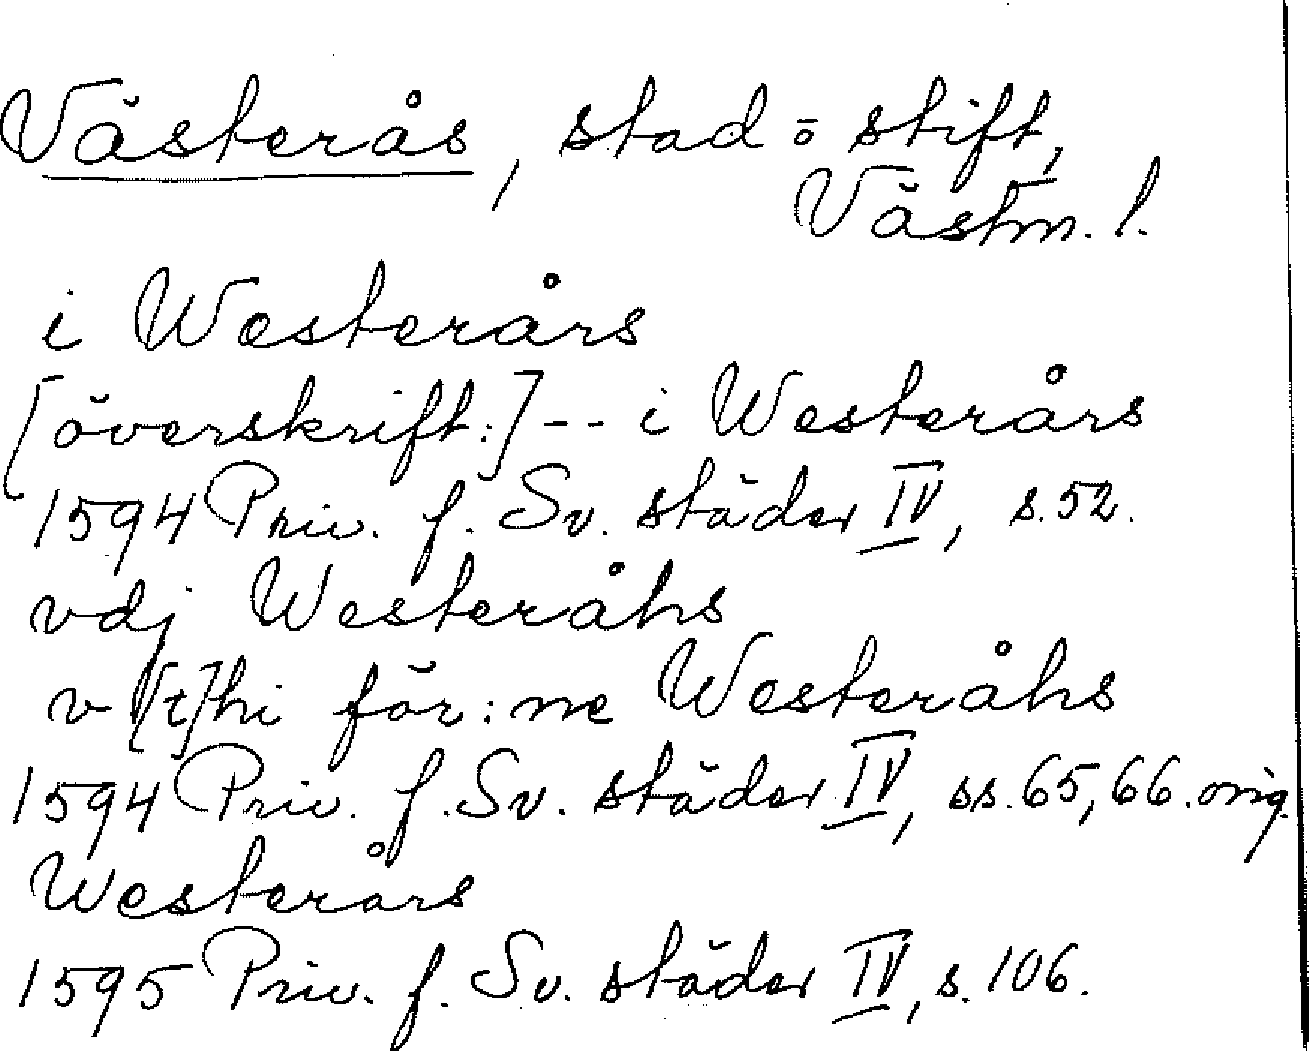 Västerås, stad o stift,
Västm. l.
i Westerårs
[överskrift:] -- i Westerårs
1594 Priv. f. Sv. städer IV, s. 52.
vdj Westeråhs
v [t]hi för:ne Westeråhs
1594 Priv. f. Sv. städer IV, ss. 65, 66. orig.
Westerårs
1595 Priv. f. Sv. städer IV, s. 106.